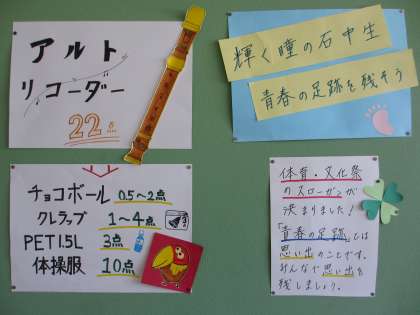 アルト
リコーダー
22点
輝く瞳の石中生
青春の足跡を残そう
チョコボール 0.5〜2点
クレラップ 1〜4点
PET1.5L 3点
体操服 10点
体育・文化祭
のスローガンが
決まりました!
「青春の足跡」とは
思い出のことです。
みんなで思い出を
残しましょう。